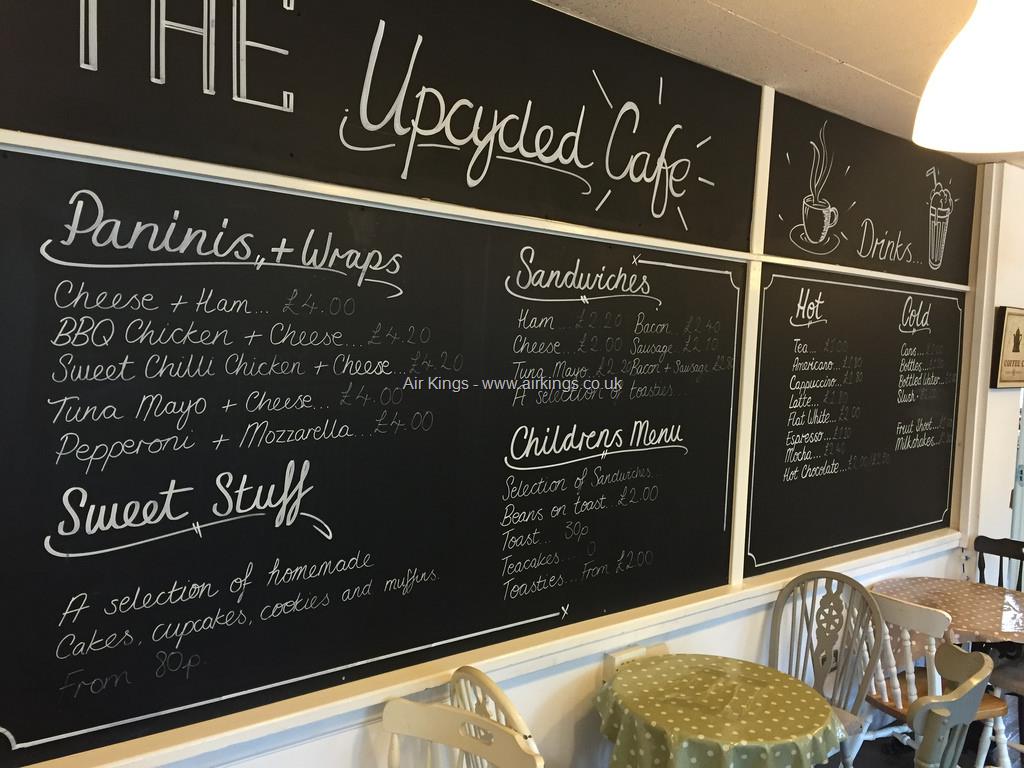 THE Upcycled Cafe
Paninis, + Wraps
Cheese + Ham... £4.00
BBQ Chicken + Cheese... £4.20
Sweet Chilli Chicken + Cheese... £4.20
Tuna Mayo + Cheese... £4.00
Pepperoni + Mozzarella... £4.00
Sweet Stuff
A selection of homemade
Cakes, cupcakes, cookies and muffins.
From 80p.
Sandwiches
Ham... £2.20 Bacon... £2.40
Cheese... £2.00 Sausage... £2.10
Tuna Mayo... £2.20 Bacon + Sausage
A selection of toasties...
Childrens Menu
Selection of Sandwiches...
Beans on toast... £2.00
Toast... 30p
Teacakes...
Toasties... From £2.00
Drinks...
Hot
Tea...
Americano...
Cappuccino...
Latte...
Flat White...
Espresso...
Mocha...
Hot Chocolate...
Cold
Cans...
Bottles...
Bottled Water...
Slush...
Fruit Shoot...
Milkshakes...
COFFEE
Air Kings - www.airkings.co.uk